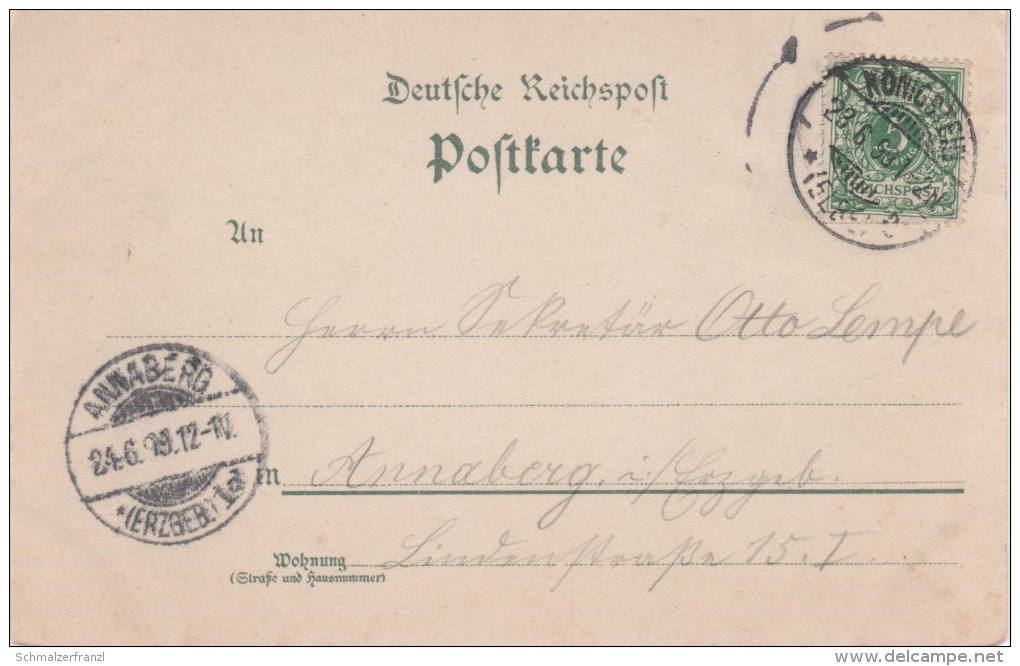 Deutsche Reichspost
Postkarte
KÖNIGSTEIN
23.6.
(ELBE)
5
REICHSPOST
An
Herrn Sekretär Otto Lempe
ANNABERG
24.6.98.12-1N.
*(ERZGEB.) 1a
in Annaberg i/Erzgeb.
Lindenstraße 15. I.
Wohnung
(Straße und Hausnummer)
Schmalzerfranzl
delcampe.net